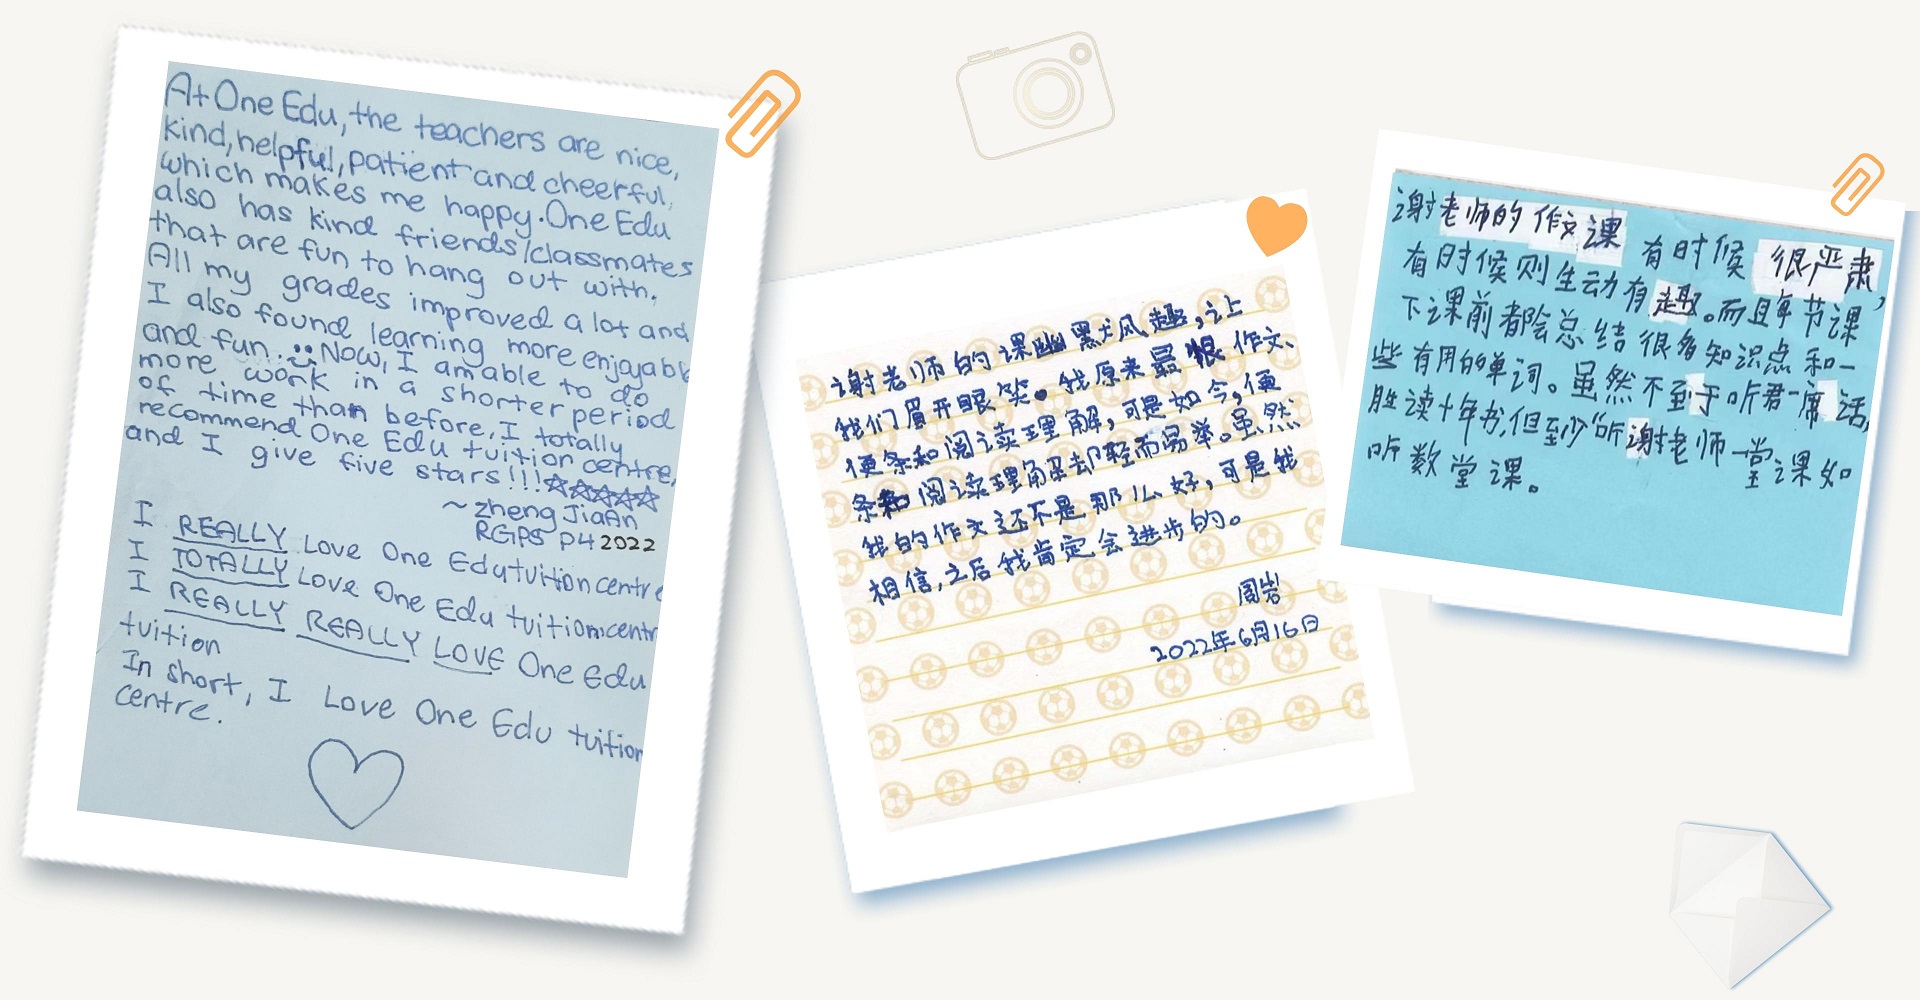 At One Edu, the teachers are nice,
kind, helpful, patient and cheerful,
which makes me happy. One Edu
also has kind friends/classmates
that are fun to hang out with.
All my grades improved a lot and
I also found learning more enjoyable
and fun. Now, I am able to do
more work in a shorter period
of time than before. I totally
recommend One Edu tuition centre,
and I give five stars!!! ☆☆☆☆☆
~ zheng JiaAn
RGPS P4 2022
I REALLY Love One Edu tuition centre
I TOTALLY Love One Edu tuition centr
I REALLY REALLY LOVE One Edu
tuition
In short, I Love One Edu tuition
centre.
谢老师的课幽默风趣,让
我们眉开眼笑。我原来最恨作文、
便条和阅读理解,可是如今,便
条和阅读理解却轻而易举。虽然
我的作文还不是那么好,可是我
相信,之后我肯定会进步的。
周岩
2022年6月16日
谢老师的作文课 有时候 很严肃,
有时候则生动有趣。而且每节课
下课前都会总结很多知识点和一
些有用的单词。虽然不至于听君一席话,
胜读十年书,但至少“听谢老师一堂课如
听数堂课。